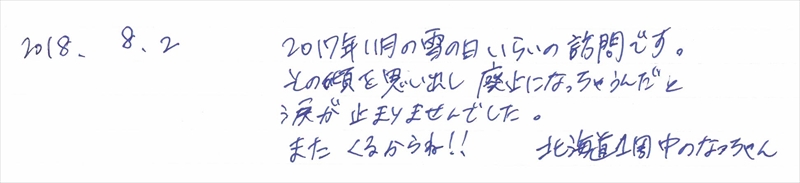 2018. 8. 2
2017年11月の雪の日いらいの訪問です。
その頃を思い出し廃止になっちゃうんだと
涙が止まりませんでした。
またくるからね!! 北海道1周中のなっちゃん